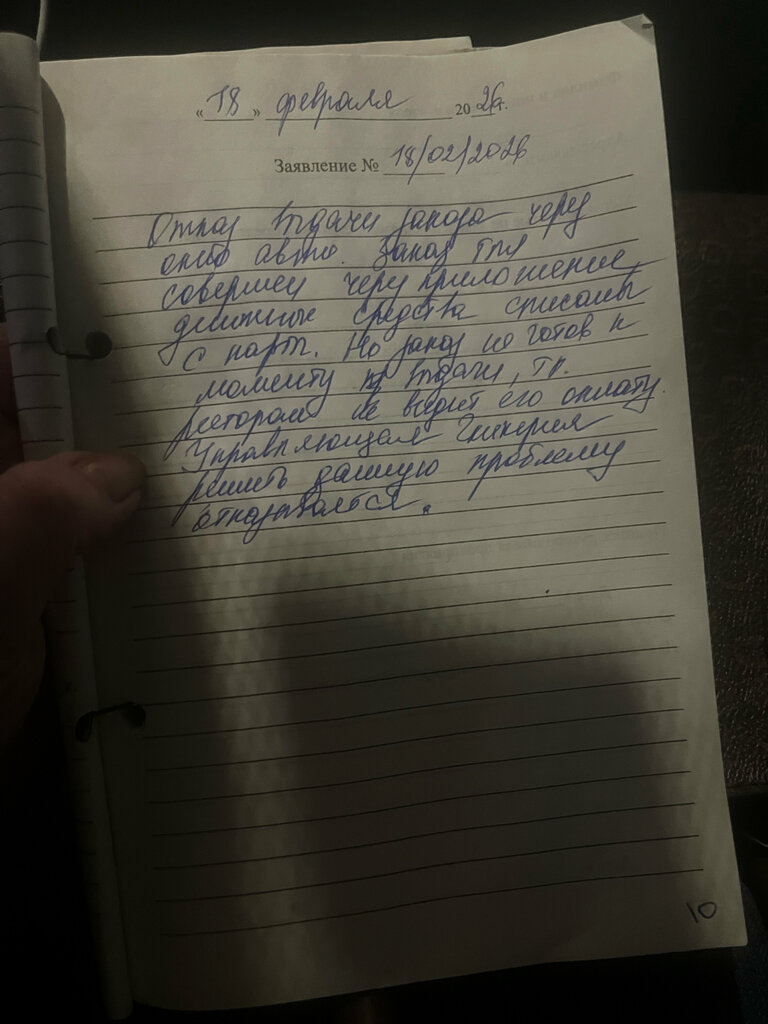 « 18 » февраля 2026г.
Заявление № 18/02/2026
Отказ выдачи заказа через
окно авто. Заказ был
совершен через приложение,
денежные средства списаны
с карты. Но заказ не готов к
моменту выдачи, т.к.
ресторан не видит его оплату.
Управляющая
решить данную проблему
отказывается.
10